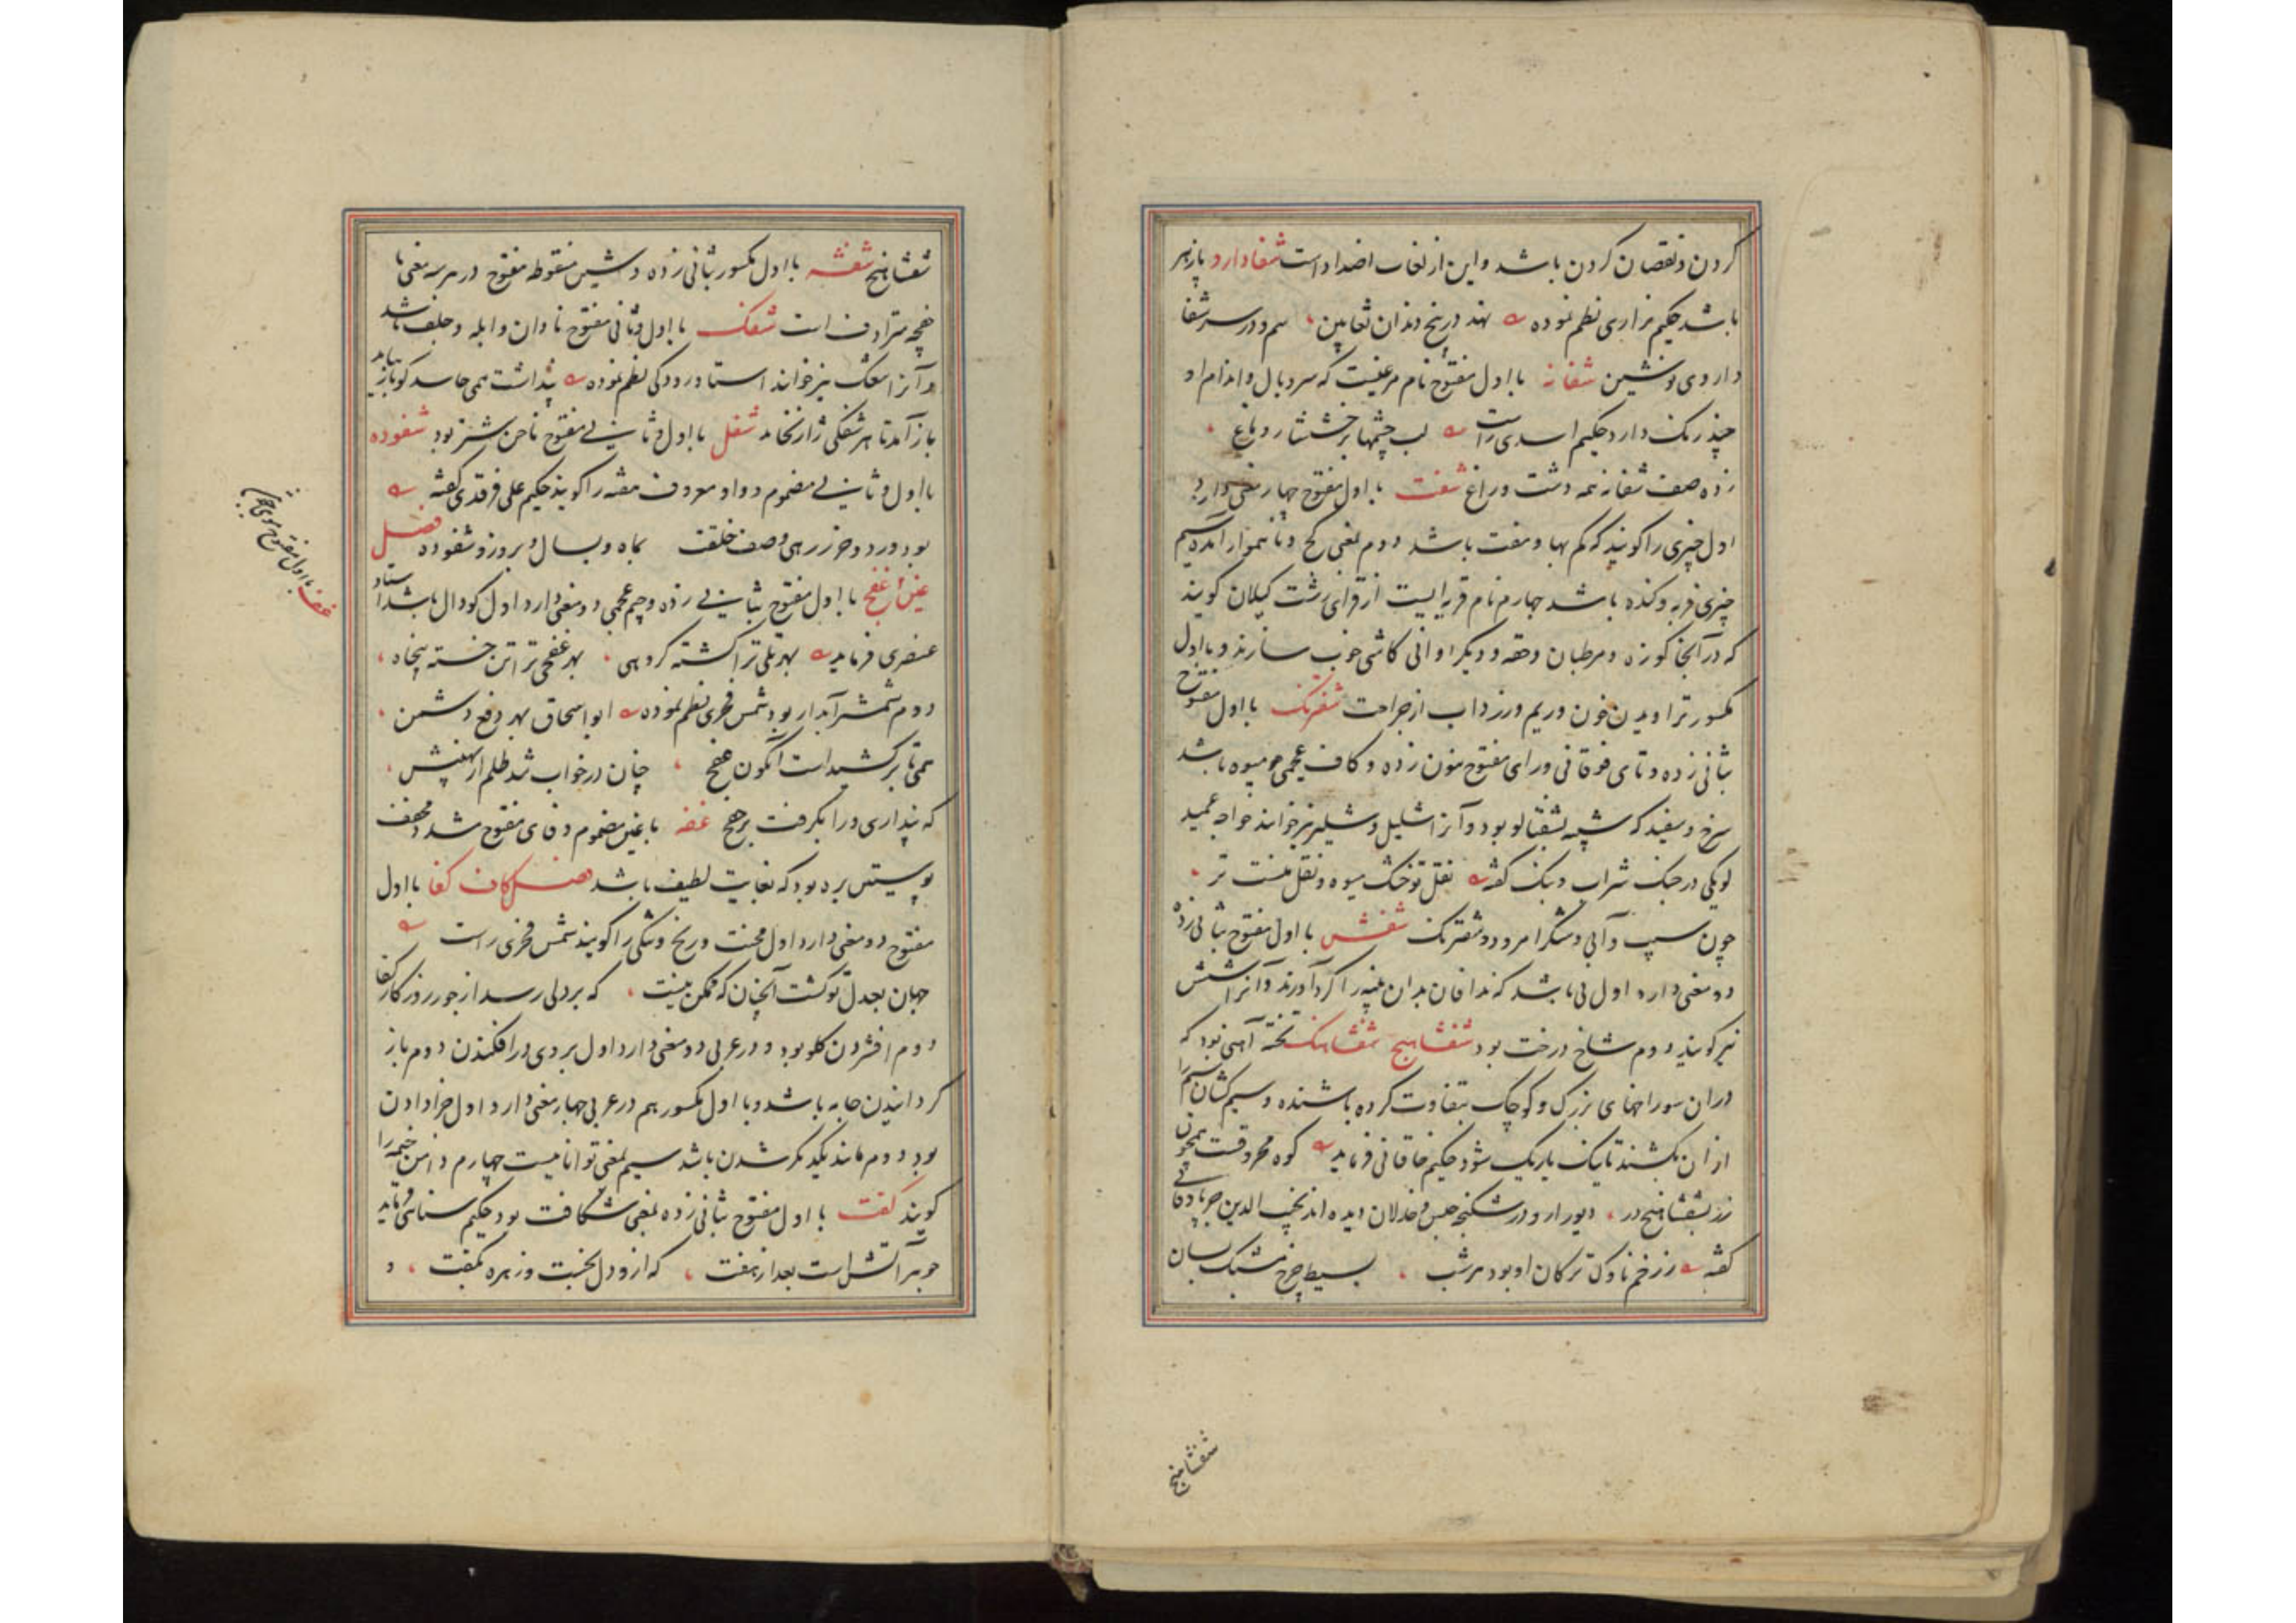 کردن و نقصان کردن باشد و این از لغات اضداد است شفادارو پازهر
باشد حکیم نزاری نظم نموده نهد در بیخ دندان ثعابین سم و در سر شفا
داروی نوشین شفانه با اول مفتوح نام مرغیست که سر و بال و اندام او
چند رنگ دارد حکیم اسدی راست لب چشمها بر خشنشار و ماغ
زده صف شفانه همه دشت و راغ شفت با اول مفتوح چهار معنی دارد
اول چیزی را گویند که کم بها و مفت باشد دوم بمعنی کج و ناهموار آمده سیم
چیزی فربه و گنده باشد چهارم نام قریه ایست از قرای رشت گیلان گویند
که در آنجا کوزه و مرطبان و حقه و دیگر اوانی کاشی خوب سازند و با اول
مکسور تراویدن خون و ریم و زرداب از جراحت شفترنک با اول مفتوح
بثانی زده و تای فوقانی و رای مفتوح بنون زده و کاف عجمی میوه باشد
سرخ و سفید که شبیه بشفتالو بود و آنرا شلیل و شلیر نیز خوانند خواجه عمید
لویکی در جنک شراب و بنک گفته نقل تو خشک میوه و نقل منست تر
چون سیب و آبی و شکر امرود و شفترنک شفش با اول مفتوح بثانی زده
دو معنی دارد اول نی باشد که ندافان بدان پنبه را گرد آورند و آنرا شش
نیز گویند دوم شاخ درخت بود شفشاهنج شفشاهنک تخته آهنی بود که
دران سوراخهای بزرک و کوچک بتفاوت کرده باشند و سیم کشان سیم را
ازان بکشند تا یک باریک شود حکیم خاقانی فرماید کوه محروقست همچون
زر بشفشاهنج در دیو را رو در شکنجه حبس و خذلان دیده اند نجیب الدین جربادقانی
گفته ز زخم ناوک ترکان او بود هر شب بسیط چرخ مشبک بسان
شفشاهنج
شفشاهنج شفشه با اول مکسور بثانی زده و شین منقوطه مفتوح در هر سه معنی با
خفچه مترادف است شفک با اول و ثانی مفتوح نادان و ابله و جلف باشد
و آنرا شغک نیز خوانند استاد رودکی نظم نموده پنداشت همی حاسد کو باز نیاید
باز آمد تا هر شفکی ژاژ نخاید شفل با اول و ثانی مفتوح ناخن شتر بود شفوده
با اول و ثانی مضموم و واو معروف هفته را گویند حکیم علی فرقدی گفته
بود ورد و حرز رهی وصف خلقت بماه و بسال و بروز و شفوده فصل
غین غفج با اول مفتوح بثانی زده و جیم عجمی دو معنی دارد اول گودال باشد استاد
عنصری فرماید بهر تلی تر از کشته گروهی بهر غفجی تر اتن خسته پنجاه
دوم شمشیر آبدار بود شمس فخری نظم نموده ابو اسحاق بهر دفع دشمن
همی تا برکشیداست آبگون غفج چنان در خواب شد ظلم از نهیبش
که پنداری ورا بگرفت برخفج غفه با غین مضموم و فای مفتوح مشدد و مخفف
پوستین بره بود که بغایت لطیف باشد فصل کاف کفا با اول
مفتوح دو معنی دارد اول محنت و رنج و تنگی را گویند شمس فخری راست
جهان بعدل تو گشت آنچنان که ممکن نیست که بر دلی رسد از جور روزگار کفا
دوم افشردن گلو بود و در عربی دو معنی دارد اول بر روی در افکندن دوم باز
گردانیدن جامه باشد و با اول مکسور هم در عربی چهار معنی دارد اول جزا دادن
بود دوم مانند یکدیگر شدن باشد سیم بمعنی توانائیست چهارم دامن خیمه را
گویند کفت با اول مفتوح بثانی زده بمعنی شکافت بود حکیم سنائی فرماید
جوهر آتش است بعد از نفت که ازو دل بخست و زهره بکفت و
غف با اول مفتوح موی